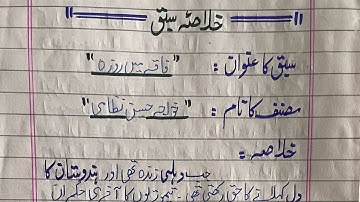 خلاصہ سبق
سبق کا عنوان : "فاقہ میں روزہ"
مصنف کا نام : "خواجہ حسن نظامی"
خلاصہ :
جب دہلی زندہ تھی اور ہندوستان کا
دل کہلانے کا حق رکھتی تھی۔ تیموریوں کا آخری حکمران